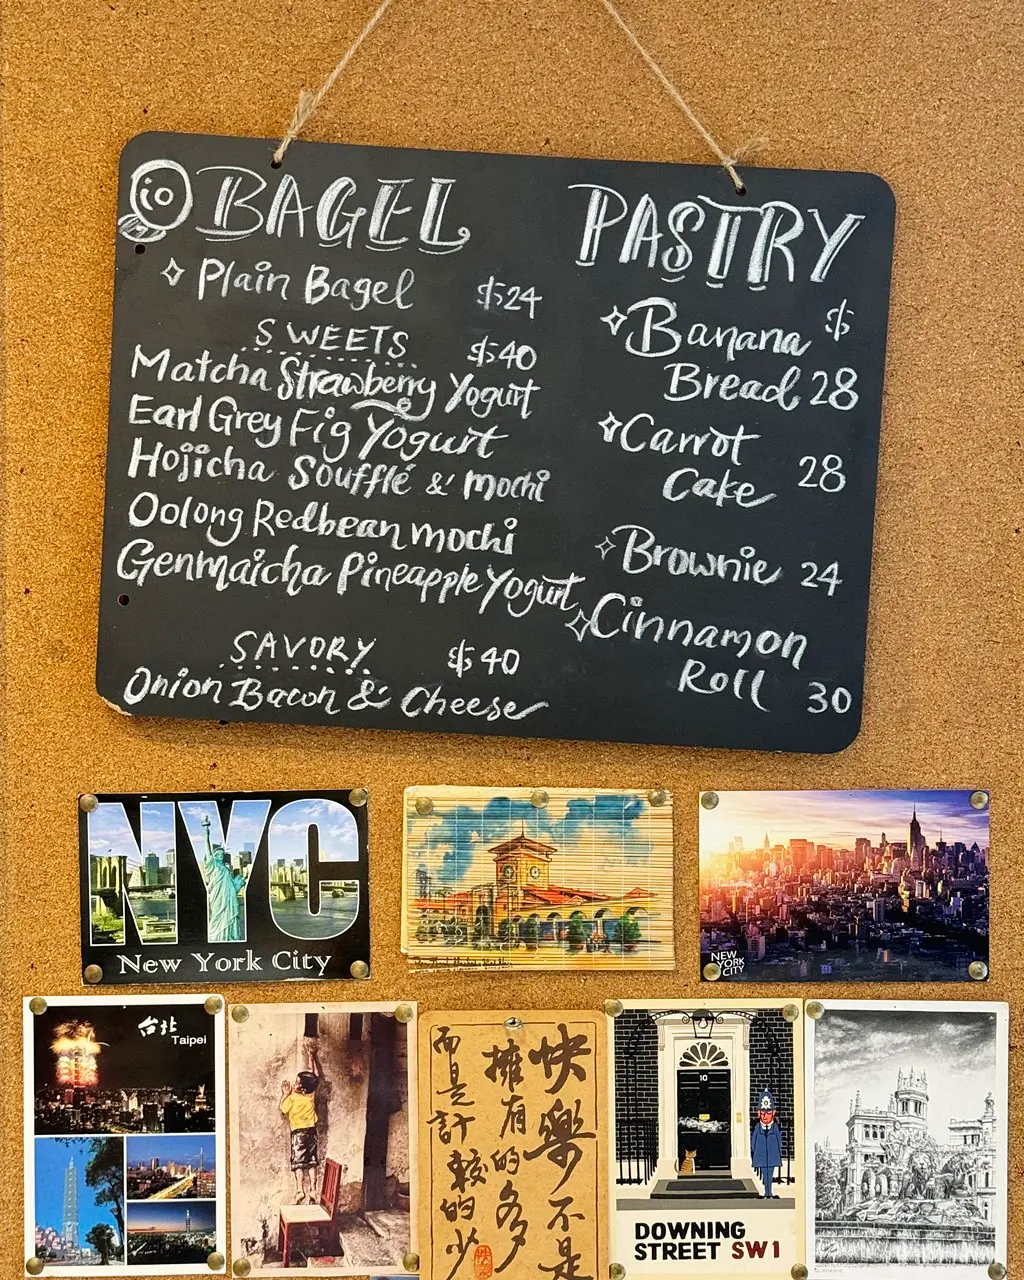 io BAGEL
Plain Bagel $24
SWEETS $40
Matcha Strawberry Yogurt
Earl Grey Fig Yogurt
Hojicha Soufflé & mochi
Oolong Redbean mochi
Genmaicha Pineapple Yogurt
SAVORY $40
Onion Bacon & Cheese
PASTRY
Banana $
Bread 28
Carrot
Cake 28
Brownie 24
Cinnamon
Roll 30
NYC
New York City
NEW
YORK
CITY
台北
Taipei
快樂不是
擁有的多
而是計較的少
10
DOWNING
STREET SW1